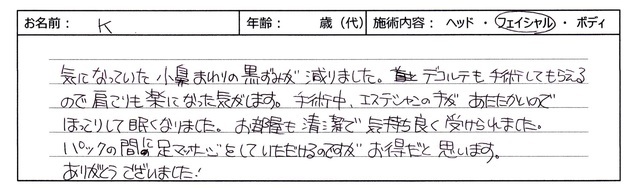 お名前： K 年齢： 歳（代） 施術内容： ヘッド ・ フェイシャル ・ ボディ
気になっていた 小鼻まわりの黒ずみが 減りました。 デコルテも手術してもらえる
ので 肩こりも 楽になった気がします。 手術中、エステシャンの手が あたたかいので
ほっこりして 眠くなりました。 お部屋も 清潔で 気持ち良く 受けられました。
パックの間に足マッサージをしていただけるのですが お得だと 思います。
ありがとう ございました！